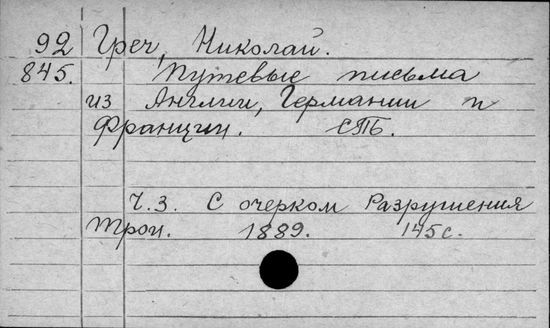 92 Греч, Николай.
845. Путевые письма
из Англии, Германии и
Франции. СПБ.
Ч.З. С очерком Разрушения
Трои. 1889. 145с.